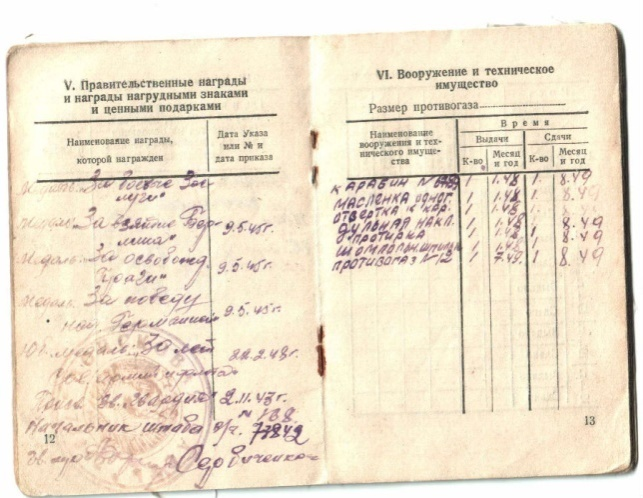 V. Правительственные награды
и награды нагрудными знаками
и ценными подарками
Наименование награды,
которой награжден
Дата Указа
или № и
дата приказа
За боевые Зас-
луги"
За взятие Бер-
лина"
9.5.45г.
За освобожд.
Праги"
9.5.45г.
За победу
над Германией
9.5.45г.
медаль "30 лет
22.2.48г.
Сов. армии и флота"
зв. Гвардия
2.11.43г.
Начальник штаба
12
VI. Вооружение и техническое
имущество
Размер противогаза
Наименование
вооружения и тех-
нического имуще-
ства
Время
Выдачи
Сдачи
К-во
Месяц
и год
К-во
Месяц
и год
КАРАБИН № 1 1.48 1. 8.49
МАСЛЕНКА ОДНОГ. 1 1.48 1.
ОТВЕРТКА К КАР. 1 1.48 1.
ДУЛЬНАЯ НАКЛ. 1 1.48 1. 8.49
ПРОТИРКА
1 1.48 1.
ПРОТИВОГАЗ №12 1 7.49. 1. 8.49
13